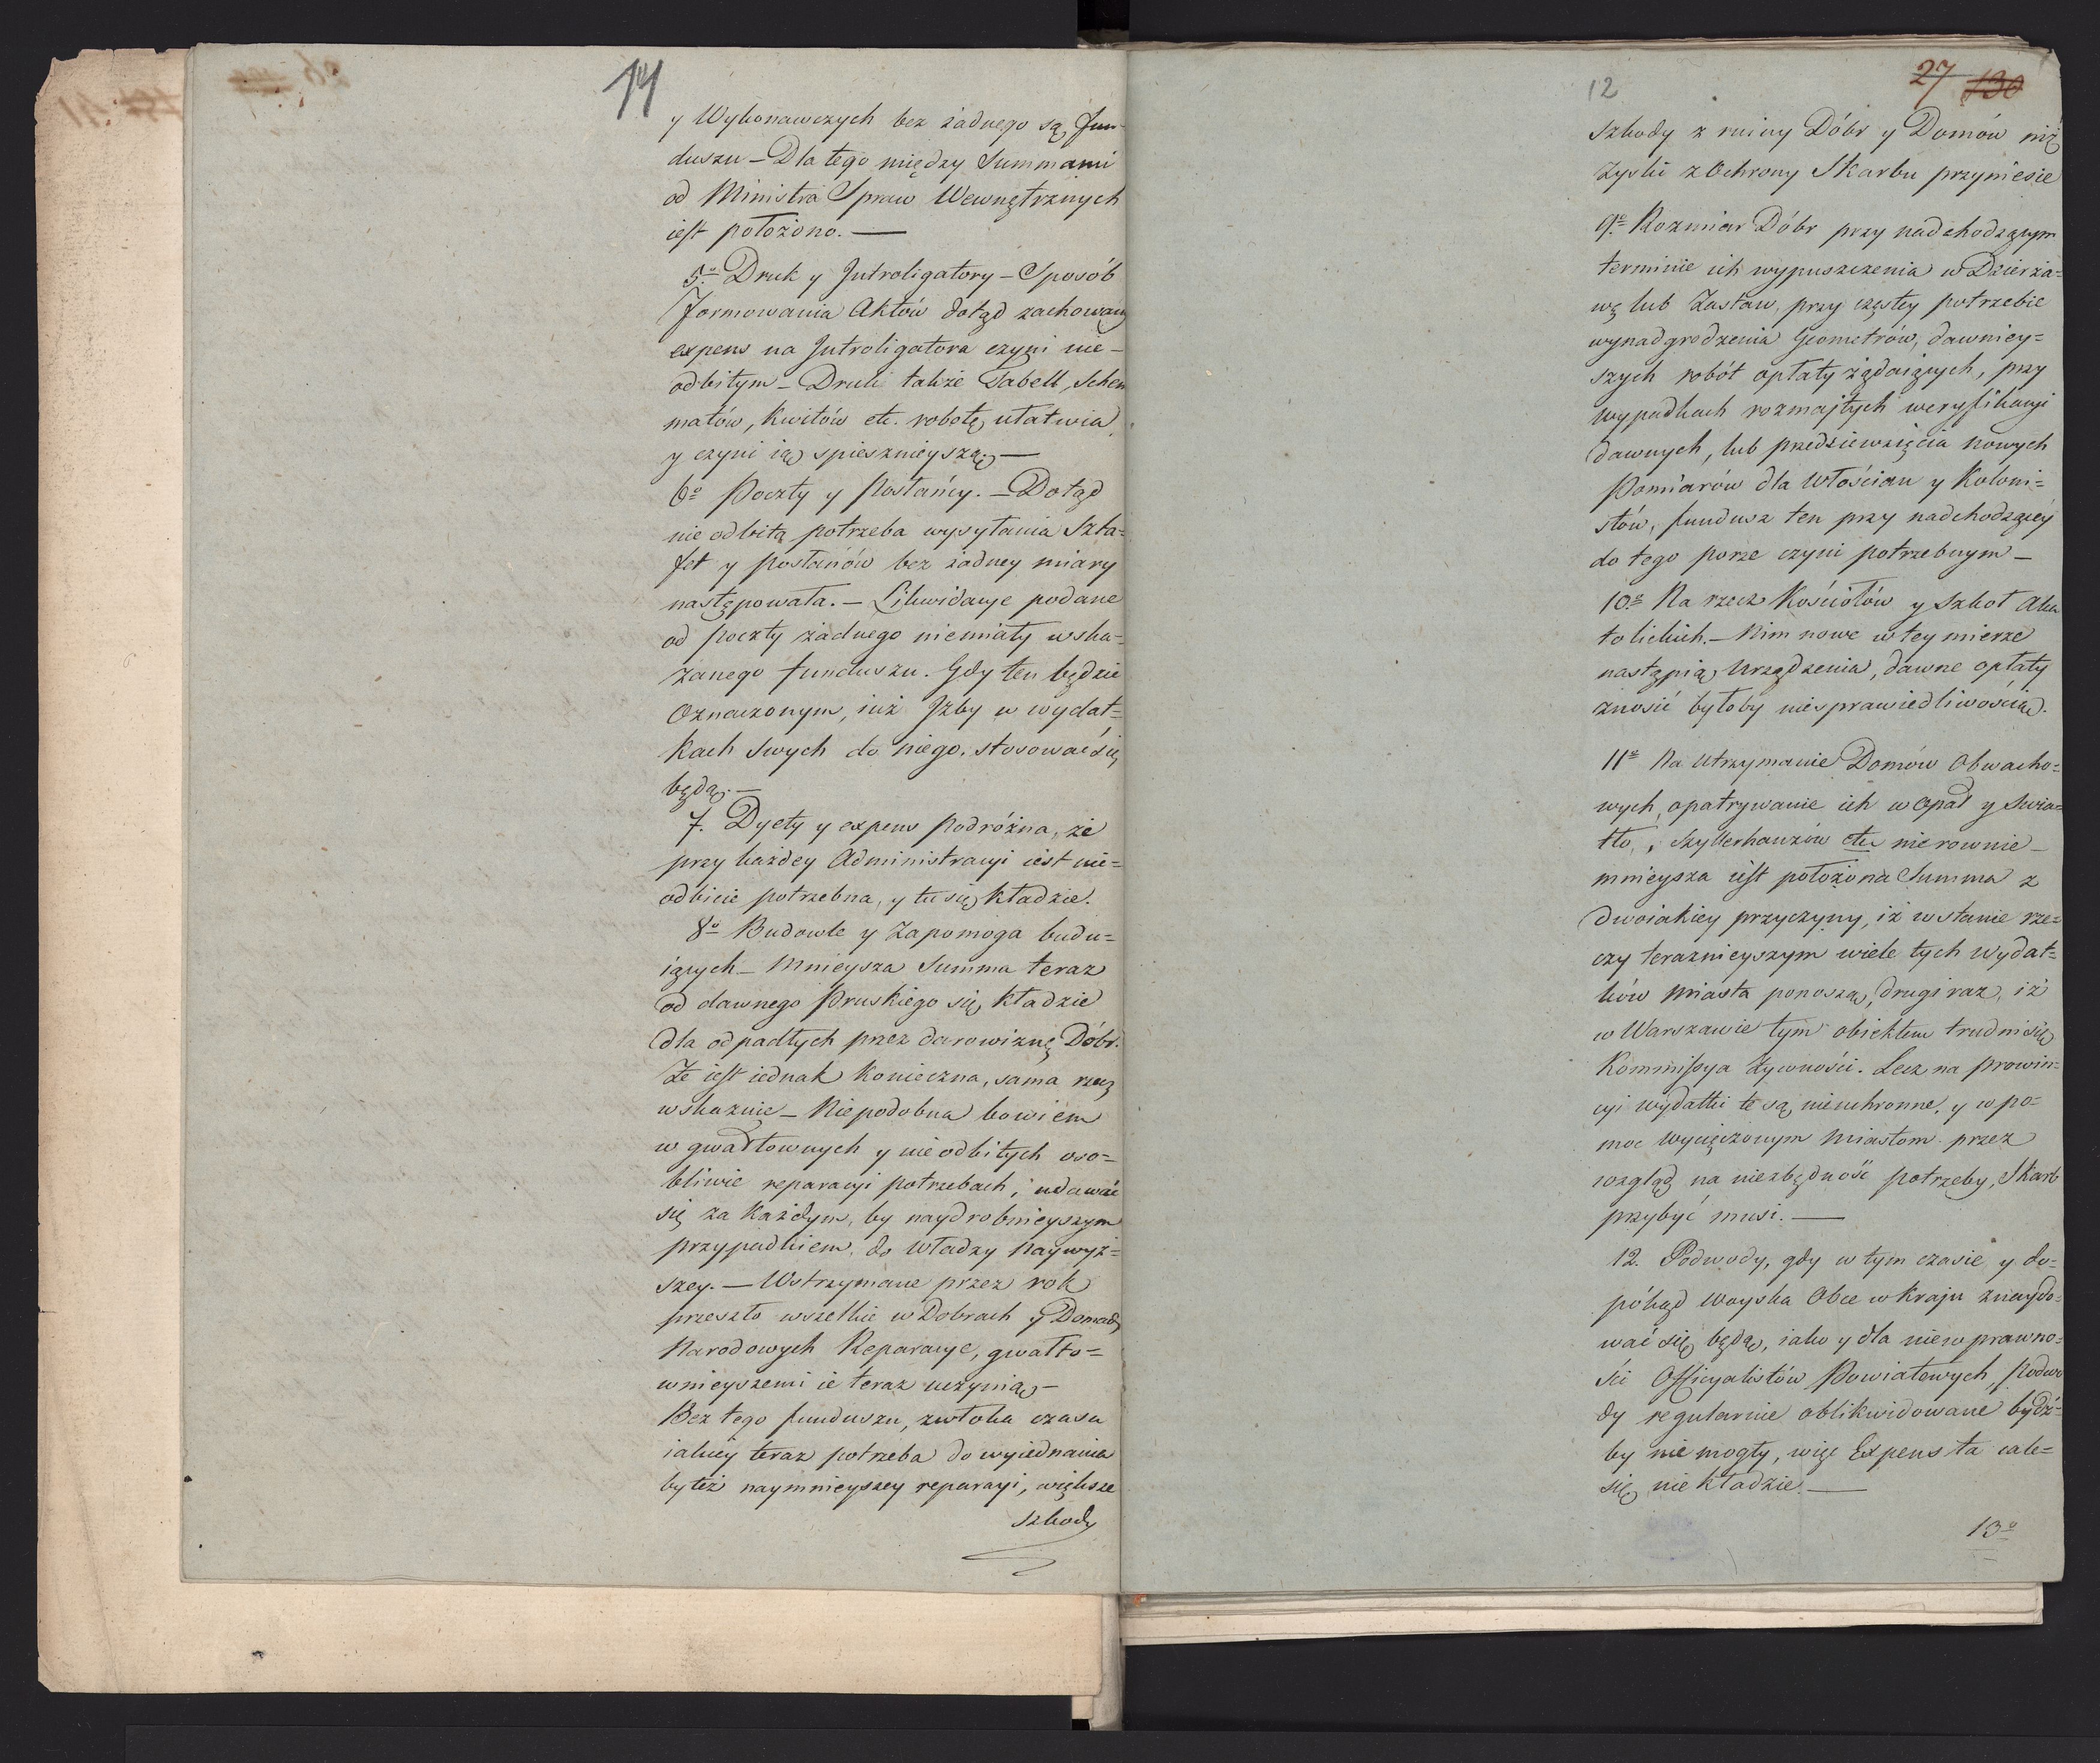 y Wykonawczych bez żadnego są Fun-
duszu – Dla tego między Summami
od Ministra Spraw Wewnętrznych
iest położono. —
5º Druk y Jntroligatory – Sposób
Formowania Aktów dotąd zachowany
expens na Jntroligatora czyni nie-
odbitym – Druk także Tabell, Schem
matów, Kwitów etc. robotę ułatwia,
y czyni ią spiesznieyszą. —
6º Poczty y Posłańcy. – Dotąd
nie odbita potrzeba wysyłania Szta=
fet y Posłańców bez żadney miary
następowała. – Likwidacye podane
od Poczty żadnego niemiały wska=
zanego funduszu. Gdy ten będzie
Oznaczonym, iuż Jzby w wydat=
kach swych do niego, stosować się
będą. —
7. Dyety y expens Podróżna, że
przy każdey Administracyi iest nie=
odbicie potrzebna, y tu się kładzie.
8º Budowle y Zapomoga budu=
iących – Mnieysza Summa teraz
od dawnego Pruskiego się kładzie
dla odpadłych przez darowiznę Dóbr.
Że iest iednak konieczna, sama rzecz
wskazuie – Niepodobna bowiem
w gwałtownych y nieodbitych oso=
bliwie reparacyi potrzebach, udawać
się za każdym, by naydrobnieyszym
przypadkiem, do Władzy naywyż=
szey. — Wstrzymane przez rok
przeszło wszelkie w Dobrach y Domach
Narodowych Reparacye, gwałto=
wnieyszemi ie teraz uczynią –
Bez tego funduszu, zwłoka czasu
iakiey teraz potrzeba do wyiednania
by też naymnieyszey reparacyi, większe
szkody
12
27 130
Szkody z ruiny Dóbr y Domów niż
Zyski z Ochrony Skarbu przyniesie
9º Rozmiar Dóbr przy nadchodzącym
terminie ich wypuszczenia w Dzierża=
wę lub Zastaw, przy częstey potrzebie
wynadgrodzenia Geometrów, dawniey=
szych robót opłaty żądaiących, przy
wypadkach rozmaitych weryfikacyi
dawnych, lub przedsiewzięcia nowych
Pomiarów dla Włościan y Koloni=
stów, fundusz ten przy nadchodzącey
do tego porze czyni potrzebnym –
10º Na rzecz Kościołów y Szkół Aka
tolickich. – Nim nowe w tey mierze
nastąpią Urządzenia, dawne opłaty
znosić byłoby niesprawiedliwością.
11º Na utrzymanie Domów Obwacho=
wych, opatrywanie ich w Opał y Swia=
tło, Szylderhauzów etc nierownie –
mnieysza iest położona Summa z
dwoiakiey przyczyny, iż w stanie rze=
czy teraznieyszym wiele tych wydat=
ków Miasta ponoszą, drugi raz, iż
w Warszawie tym obiektem trudni się
Kommissya Żywności. Lecz na prowin=
cyi wydatki te są nieuchronne, y w po=
moc wycięczonym Miastom przez
wzgląd na niezbędność potrzeby, Skarb
przybyć musi. —
12. Podwody, gdy w tym czasie y do=
pókąd Woyska Obce w kraju znaydo=
wać się będą, iako y dla niewprawno=
ści Officyalistów Powiatowych, Podwo
dy regularnie oblikwidowane bydź=
by nie mogły, więc Expens ta cale=
się nie kładzie. —
13º